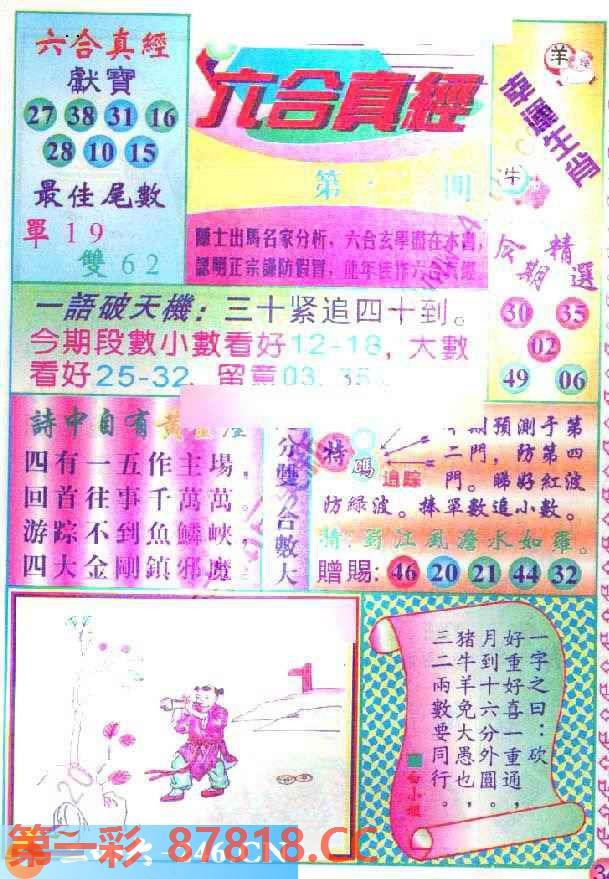 六合真經
獻寶
27 38 31 16
28 10 15
最佳尾數
單19
雙62
六合真經
第 期
隱士出馬名家分析，六合玄學盡在本書，
認明正宗謹防假冒，龍年佳作六合真經
羊
幸運生肖
牛
今期精選
30 35
02
49 06
一語破天機：三十紧追四十到。
今期段數小數看好12-18，大數
看好25-32，留意03，35
詩中自有黃
四有一五作主場，
回首往事千萬萬。
游踪不到魚鱗峽，
四大金剛鎮邪魔
分雙合數大
特碼追踪
期預測于第
二門，防第四
門。睇好紅波
防綠波。捧單數追小數。
特：蜀江風澹水如羅。
贈賜：46 20 21 44 32
一字之曰：砍
好重好喜一重通，
月到十六分外圓，
猪牛羊兔大愚也，
三二兩數要同行。
白小姐
第一彩 87818.CC
46.CN
3